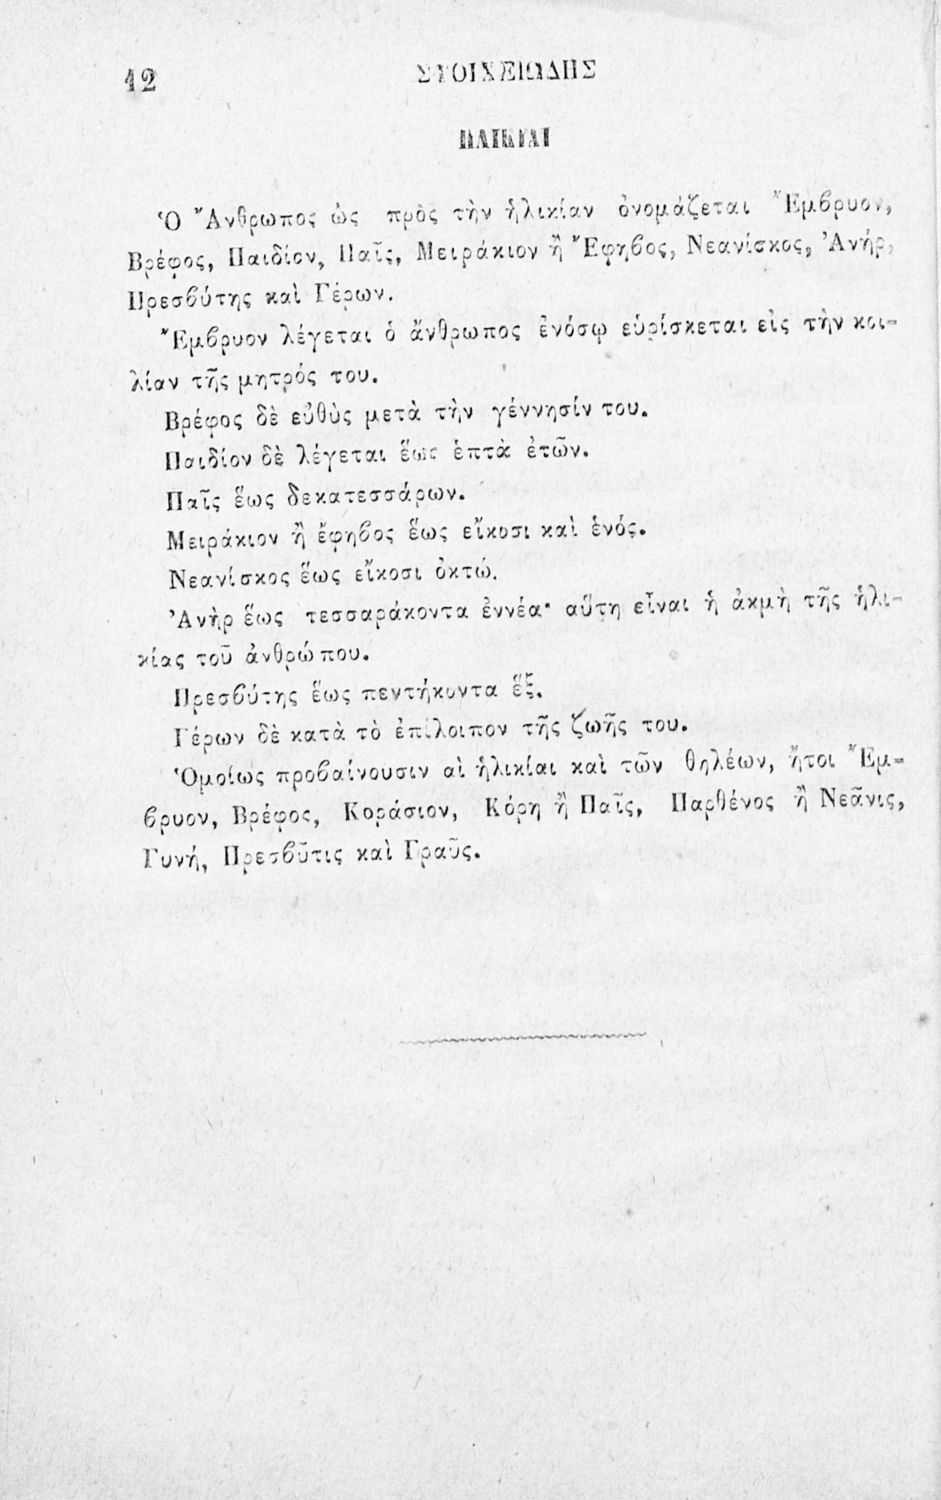 12
ΣΤΟΙΧΕΙΩΔΗΣ
ΗΛΙΚΙΑΙ
Ὁ Ἄνθρωπος ὡς πρὸς τὴν ἡλικίαν ὀνομάζεται Ἔμβρυον,
Βρέφος, Παιδίον, Παῖς, Μειράκιον ἢ Ἔφηβος, Νεανίσκος, Ἀνήρ,
Πρεσβύτης καὶ Γέρων.
Ἔμβρυον λέγεται ὁ ἄνθρωπος ἐνόσῳ εὑρίσκεται εἰς τὴν κοι-
λίαν τῆς μητρός του.
Βρέφος δὲ εὐθὺς μετὰ τὴν γέννησίν του.
Παιδίον δὲ λέγεται ἕως ἑπτὰ ἐτῶν.
Παῖς ἕως δεκατεσσάρων.
Μειράκιον ἢ ἔφηβος ἕως εἴκοσι καὶ ἑνός.
Νεανίσκος ἕως εἴκοσι ὀκτώ.
Ἀνὴρ ἕως τεσσαράκοντα ἐννέα· αὕτη εἶναι ἡ ἀκμὴ τῆς ἡλι-
κίας τοῦ ἀνθρώπου.
Πρεσβύτης ἕως πεντήκοντα ἕξ.
Γέρων δὲ κατὰ τὸ ἐπίλοιπον τῆς ζωῆς του.
Ὁμοίως προβαίνουσιν αἱ ἡλικίαι καὶ τῶν θηλέων, ἤτοι Ἔμ-
βρυον, Βρέφος, Κοράσιον, Κόρη ἢ Παῖς, Παρθένος ἢ Νεᾶνις,
Γυνή, Πρεσβῦτις καὶ Γραῦς.